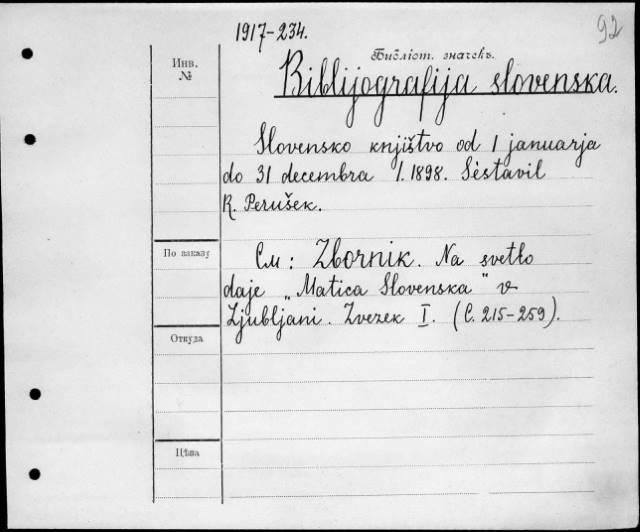 1917-234.
92
Инв.
№
Библіот. значекъ.
Biblijografija slovenska.
Slovensko knjištvo od 1 januarja
do 31 decembra l. 1898. Sèstavil
R. Perušek.
По заказу
См: Zbornik. Na svetlo
daje „Matica Slovenska" v
Ljubljani. Zvezek I. (С. 215-259).
Откуда
Цѣна